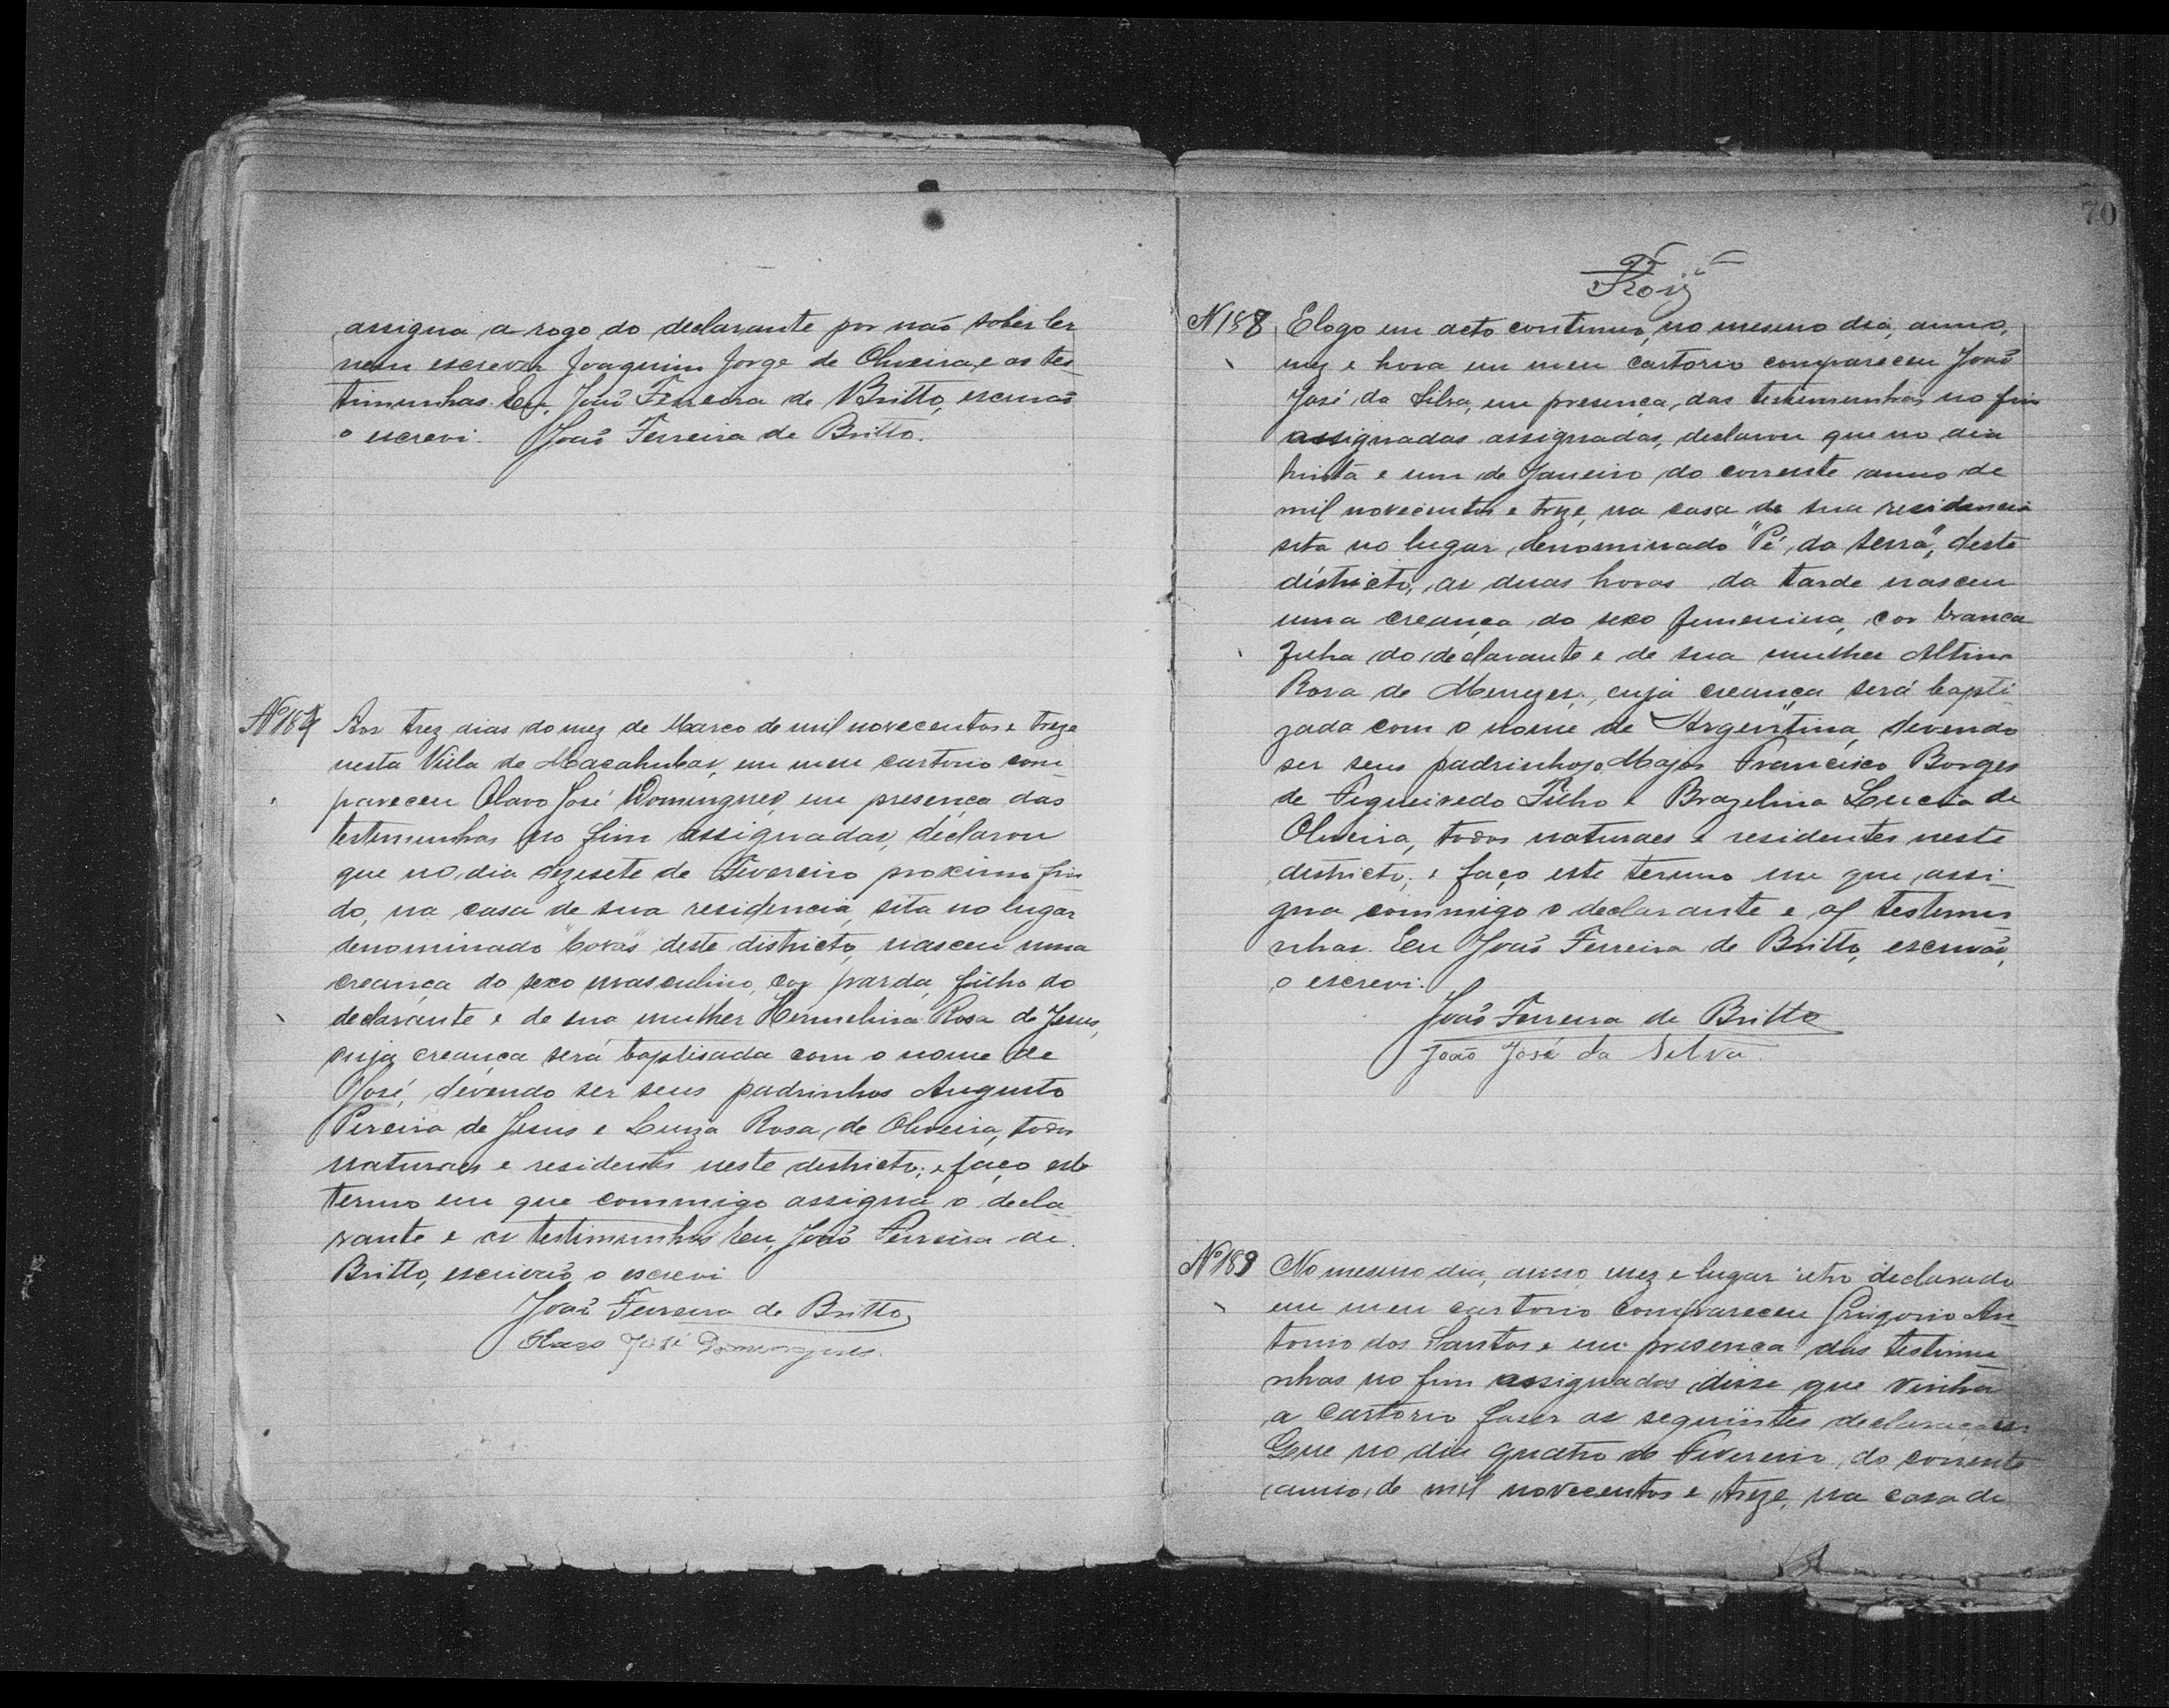 assigna a rogo do declarante por não saber ler
nem escrever Joaquim Jorge de Oliveira, e as tes
timunhas. Eu, João Ferreira de Britto, escrivão
o escrevi. João Ferreira de Britto.
Nº 187 Aos trez dias do mez de Março de mil novecentos e treze
nesta Villa de Macahubas, em meu cartorio com
pareceu Olavo José Domingues, em presença das
testimunhas no fim assignadas, declarou
que no dia dezesete de Fevereiro proximo fin
do, na casa de sua residencia, sita no lugar
denominado "covas" deste districto, nasceu uma
creança do sexo masculino, cor parda, filho do
declarante e de sua mulher Hermelina Rosa de Jesus,
cuja creança será baptisada com o nome de
José, devendo ser seus padrinhos Augusto
Pereira de Jesus e Luiza Rosa de Oliveira, todos
naturaes e residentes neste districto; e faço este
termo em que commigo assigna o decla
rante e as testimunhas. Eu, João Ferreira de
Britto, escrivão, o escrevi
João Ferreira de Britto,
Olavo José Domingues.
70
N 188 E logo em acto continuo, no mesmo dia, anno,
mez e hora em meu cartorio compareceu João
José da Silva, em presença, das testemunhas no fim
assignadas assignadas, declarou que no dia
trinta e um de Janeiro do corrente anno de
mil novecentos e treze, na casa de sua residencia
sita no lugar denominado "Pé da Serra", deste
districto, as duas horas da tarde nasceu
uma creança do sexo femenina, cor branca
filha do declarante e de sua mulher Altina
Rosa de Menezes, cuja creança será bapti
zada com o nome de "Argentina", devendo
ser seus padrinhos o Major Francisco Borges
de Figueiredo Filho e Brazelina Lucia de
Oliveira, todos naturaes e residentes neste
districto; e faço este termo em que assi-
gna commigo o declarante e as testemu
nhas. Eu João Ferreira de Britto, escrivão,
o escrevi.
João Ferreira de Britto
João José da Silva.
Nº 189 No mesmo dia, anno, mez e lugar retro declarado
em meu cartorio compareceu Grigorio An
tonio dos Santos e em presença das testimu
nhas no fim assignadas disse que vinha
a cartorio faser as seguintes declarações:
Que no dia quatro de Fevereiro do corrente
anno, de mil novecentos e treze, na casa de